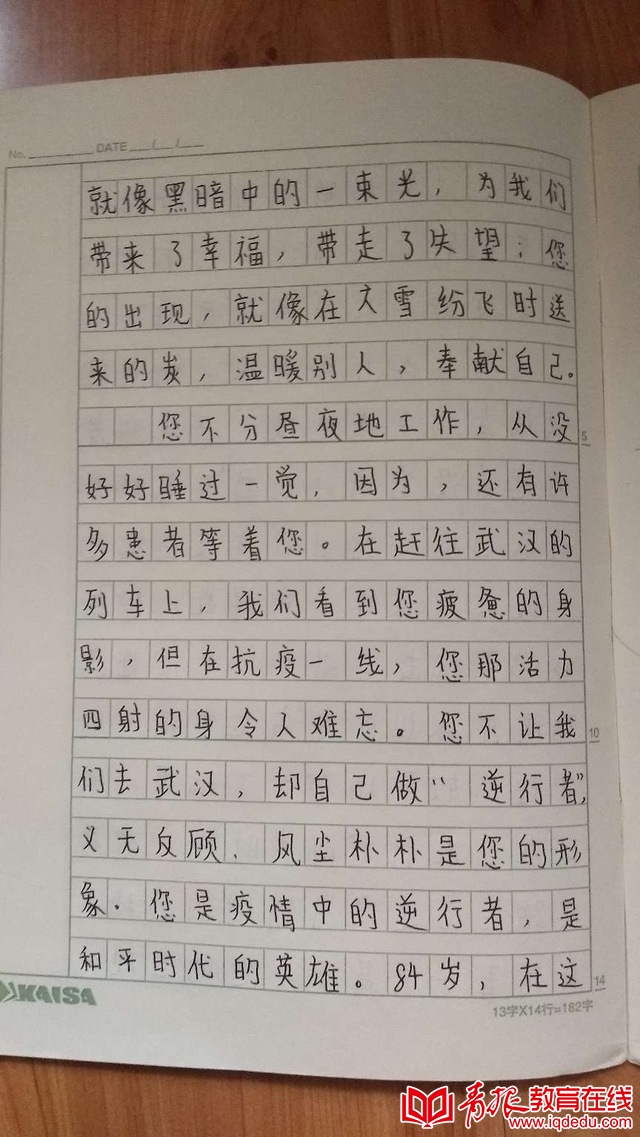 No. DATE / /
就像黑暗中的一束光，为我们
带来了幸福，带走了失望；您
的出现，就像在大雪纷飞时送
来的炭，温暖别人，奉献自己。
您不分昼夜地工作，从没
好好睡过一觉，因为，还有许
多患者等着您。在赶往武汉的
列车上，我们看到您疲惫的身
影，但在抗疫一线，您那活力
四射的身令人难忘。您不让我
们去武汉，却自己做“逆行者”，
义无反顾、风尘朴朴是您的形
象．您是疫情中的逆行者，是
和平时代的英雄。84岁，在这
5
10
14
KAISA
13字X14行=182字
青报教育在线
www.iqdedu.com